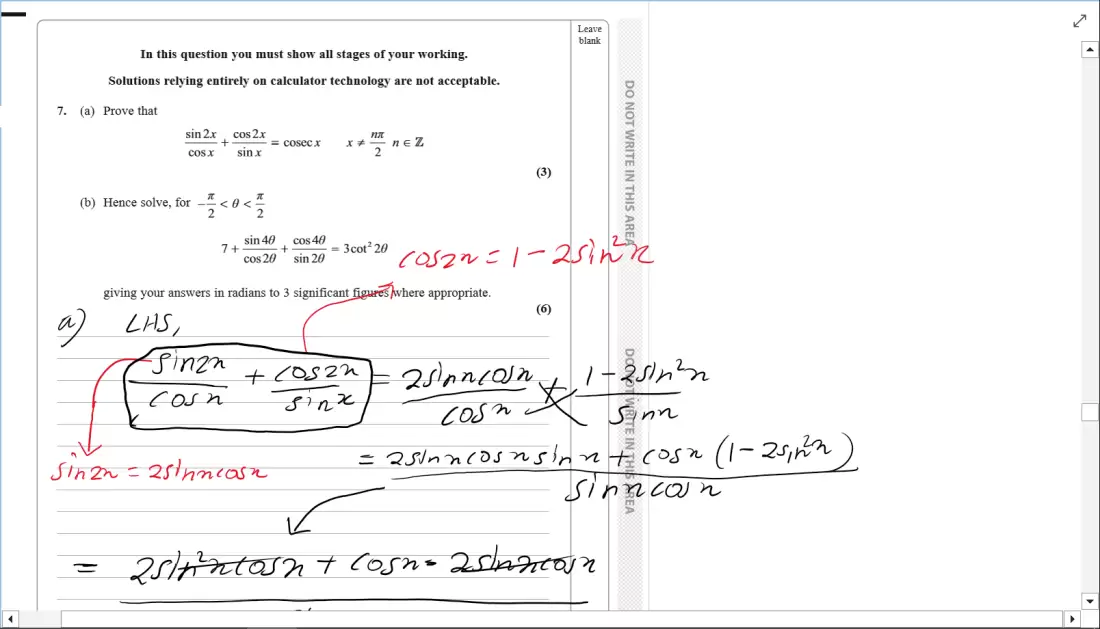 Leave
blank
In this question you must show all stages of your working.
Solutions relying entirely on calculator technology are not acceptable.
7. (a) Prove that
sin 2x/cos x + cos 2x/sin x = cosec x    x ≠ nπ/2  n ∈ ℤ
(3)
(b) Hence solve, for −π/2 < θ < π/2
7 + sin 4θ/cos 2θ + cos 4θ/sin 2θ = 3cot² 2θ
cos2x = 1 − 2sin²x
giving your answers in radians to 3 significant figures where appropriate.
(6)
a) LHS,
sin2x/cosx + cos2x/sinx = 2sinxcosx/cosx + 1−2sin²x/sinx
sin2x = 2sinxcosx
= 2sinxcosxsinx + cosx (1−2sin²x)/sinxcosx
= 2sin²xcosx + cosx − 2sinxcosx
DO NOT WRITE IN THIS AREA
DO NOT WRITE IN THIS AREA